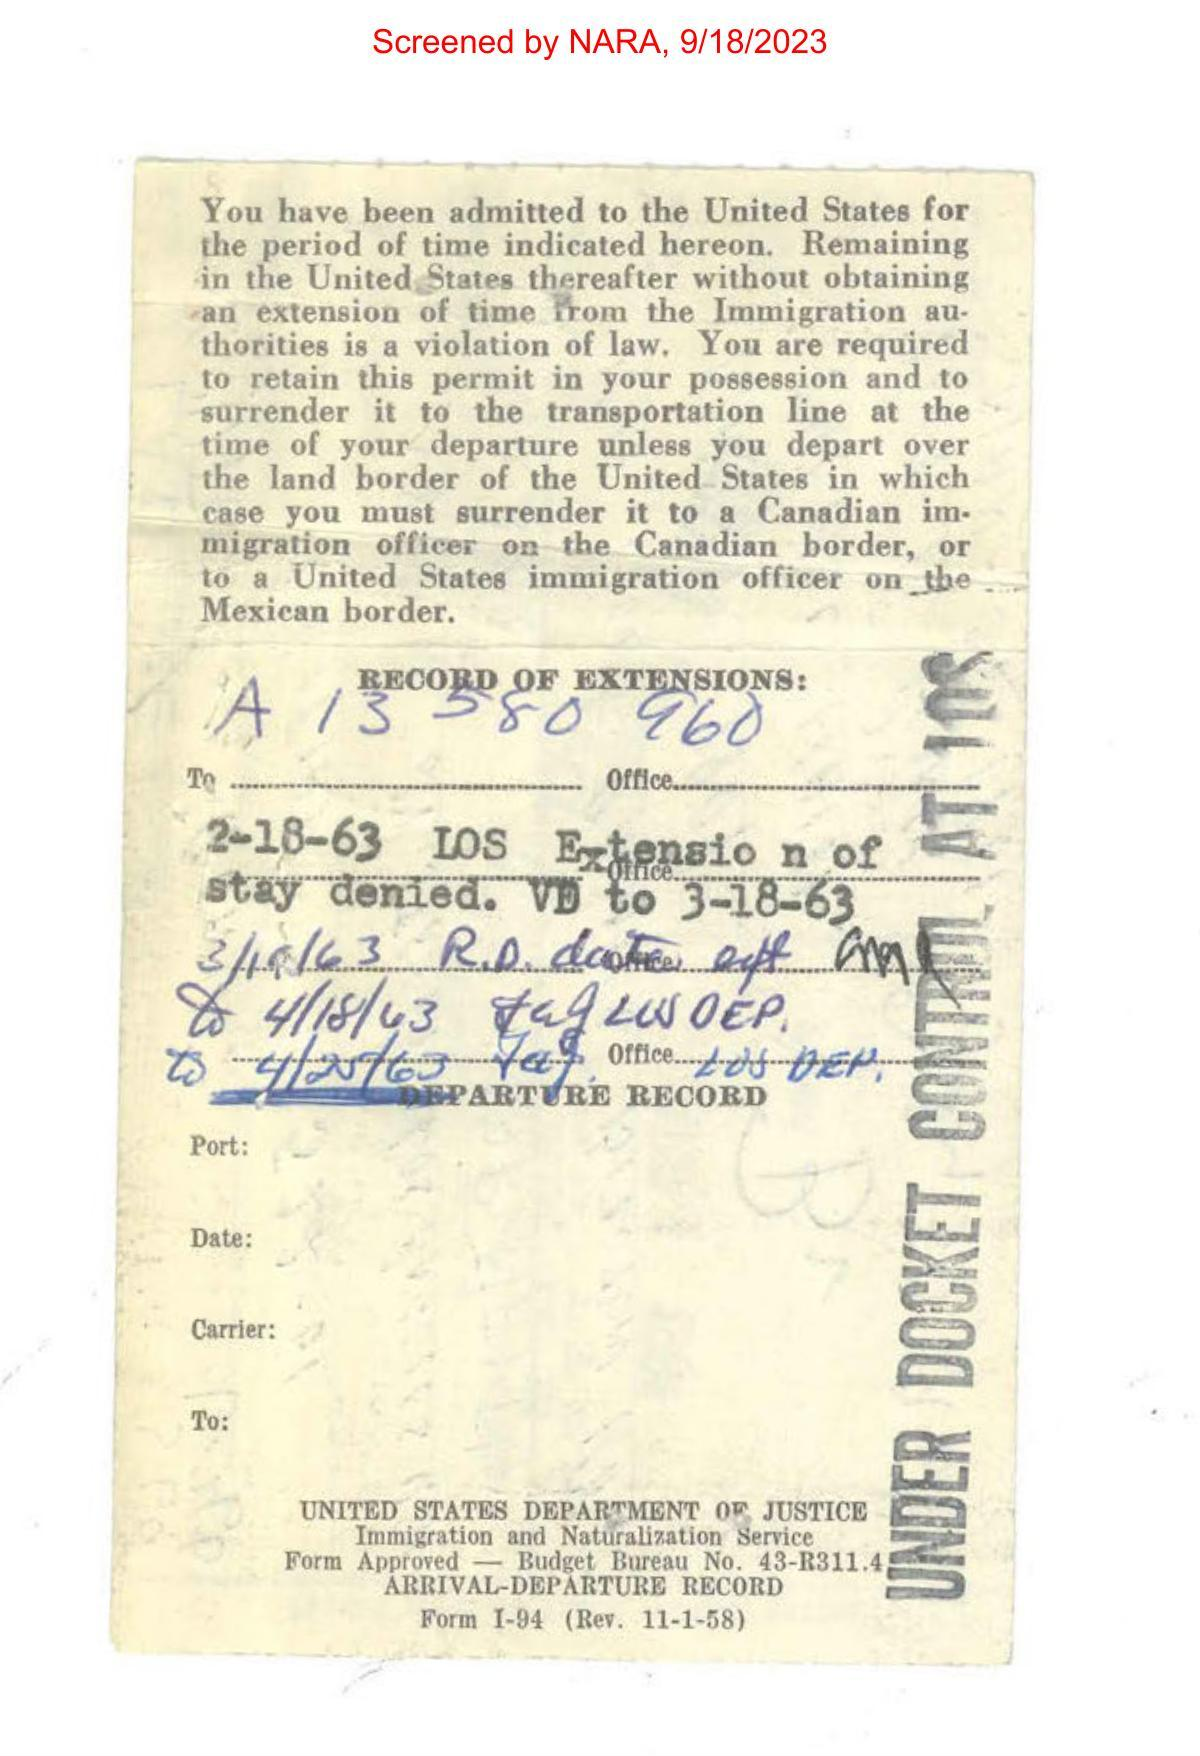 Screened by NARA, 9/18/2023
You have been admitted to the United States for
the period of time indicated hereon. Remaining
in the United States thereafter without obtaining
an extension of time from the Immigration au-
thorities is a violation of law. You are required
to retain this permit in your possession and to
surrender it to the transportation line at the
time of your departure unless you depart over
the land border of the United States in which
case you must surrender it to a Canadian im-
migration officer on the Canadian border, or
to a United States immigration officer on the
Mexican border.
RECORD OF EXTENSIONS:
A 13 580 960
To Office
2-18-63 LOS Extensio n of
Office
stay denied. VD to 3-18-63
3/19/63 R.D. date Office
to 4/18/63 LOS DEP.
to 4/25/63 Office LOS DEP.
DEPARTURE RECORD
Port:
Date:
Carrier:
To:
UNITED STATES DEPARTMENT OF JUSTICE
Immigration and Naturalization Service
Form Approved — Budget Bureau No. 43-R311.4
ARRIVAL-DEPARTURE RECORD
Form I-94 (Rev. 11-1-58)
UNDER DOCKET CONTROL AT LOS